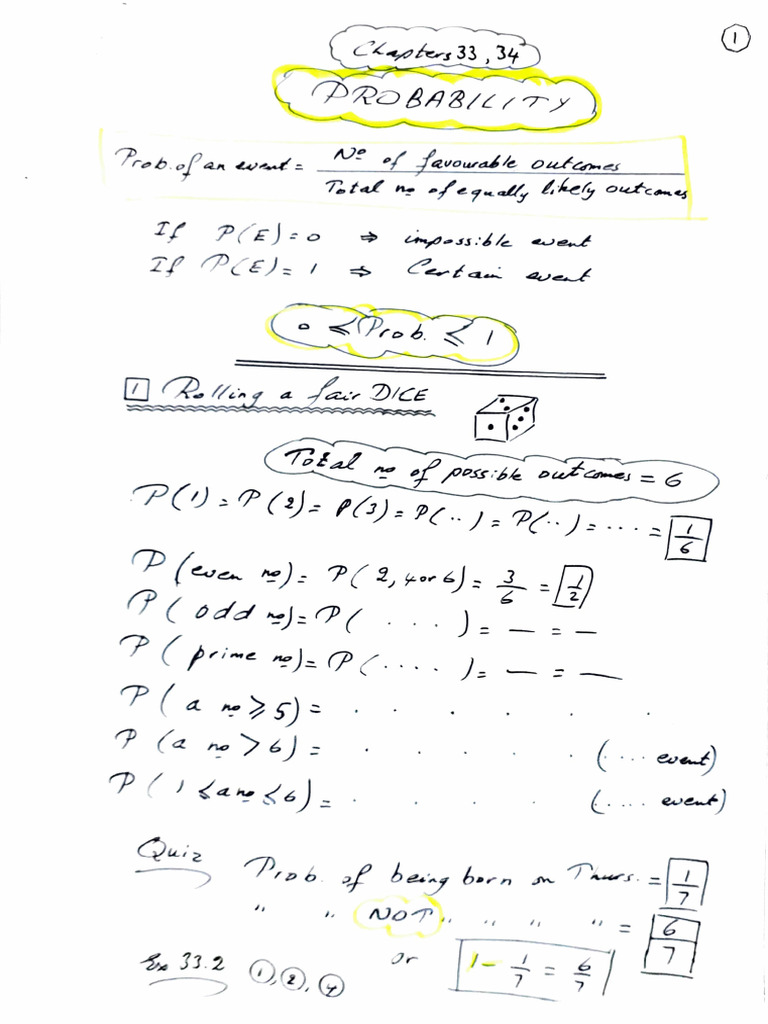 1
Chapters 33, 34
PROBABILITY
Prob. of an event = Nº of favourable outcomes / Total nº of equally likely outcomes
If P(E) = 0 ⇒ impossible event
If P(E) = 1 ⇒ Certain event
0 ≤ Prob. ≤ 1
1 Rolling a fair DICE
Total nº of possible outcomes = 6
P(1) = P(2) = P(3) = P(..) = P(..) = .... = 1/6
P(even nº) = P(2, 4 or 6) = 3/6 = 1/2
P(odd nº) = P( . . . . ) = — = —
P(prime nº) = P( . . . . ) = — = —
P(a nº ≥ 5) = . . . . . .
P(a nº > 6) = . . . . . (.... event)
P(1 ≤ a nº ≤ 6) = . . . . (.... event)
Quiz Prob. of being born on Thurs. = 1/7
" " NOT " " " " = 6/7
or 1 - 1/7 = 6/7
Ex 33.2 1, 2, 4